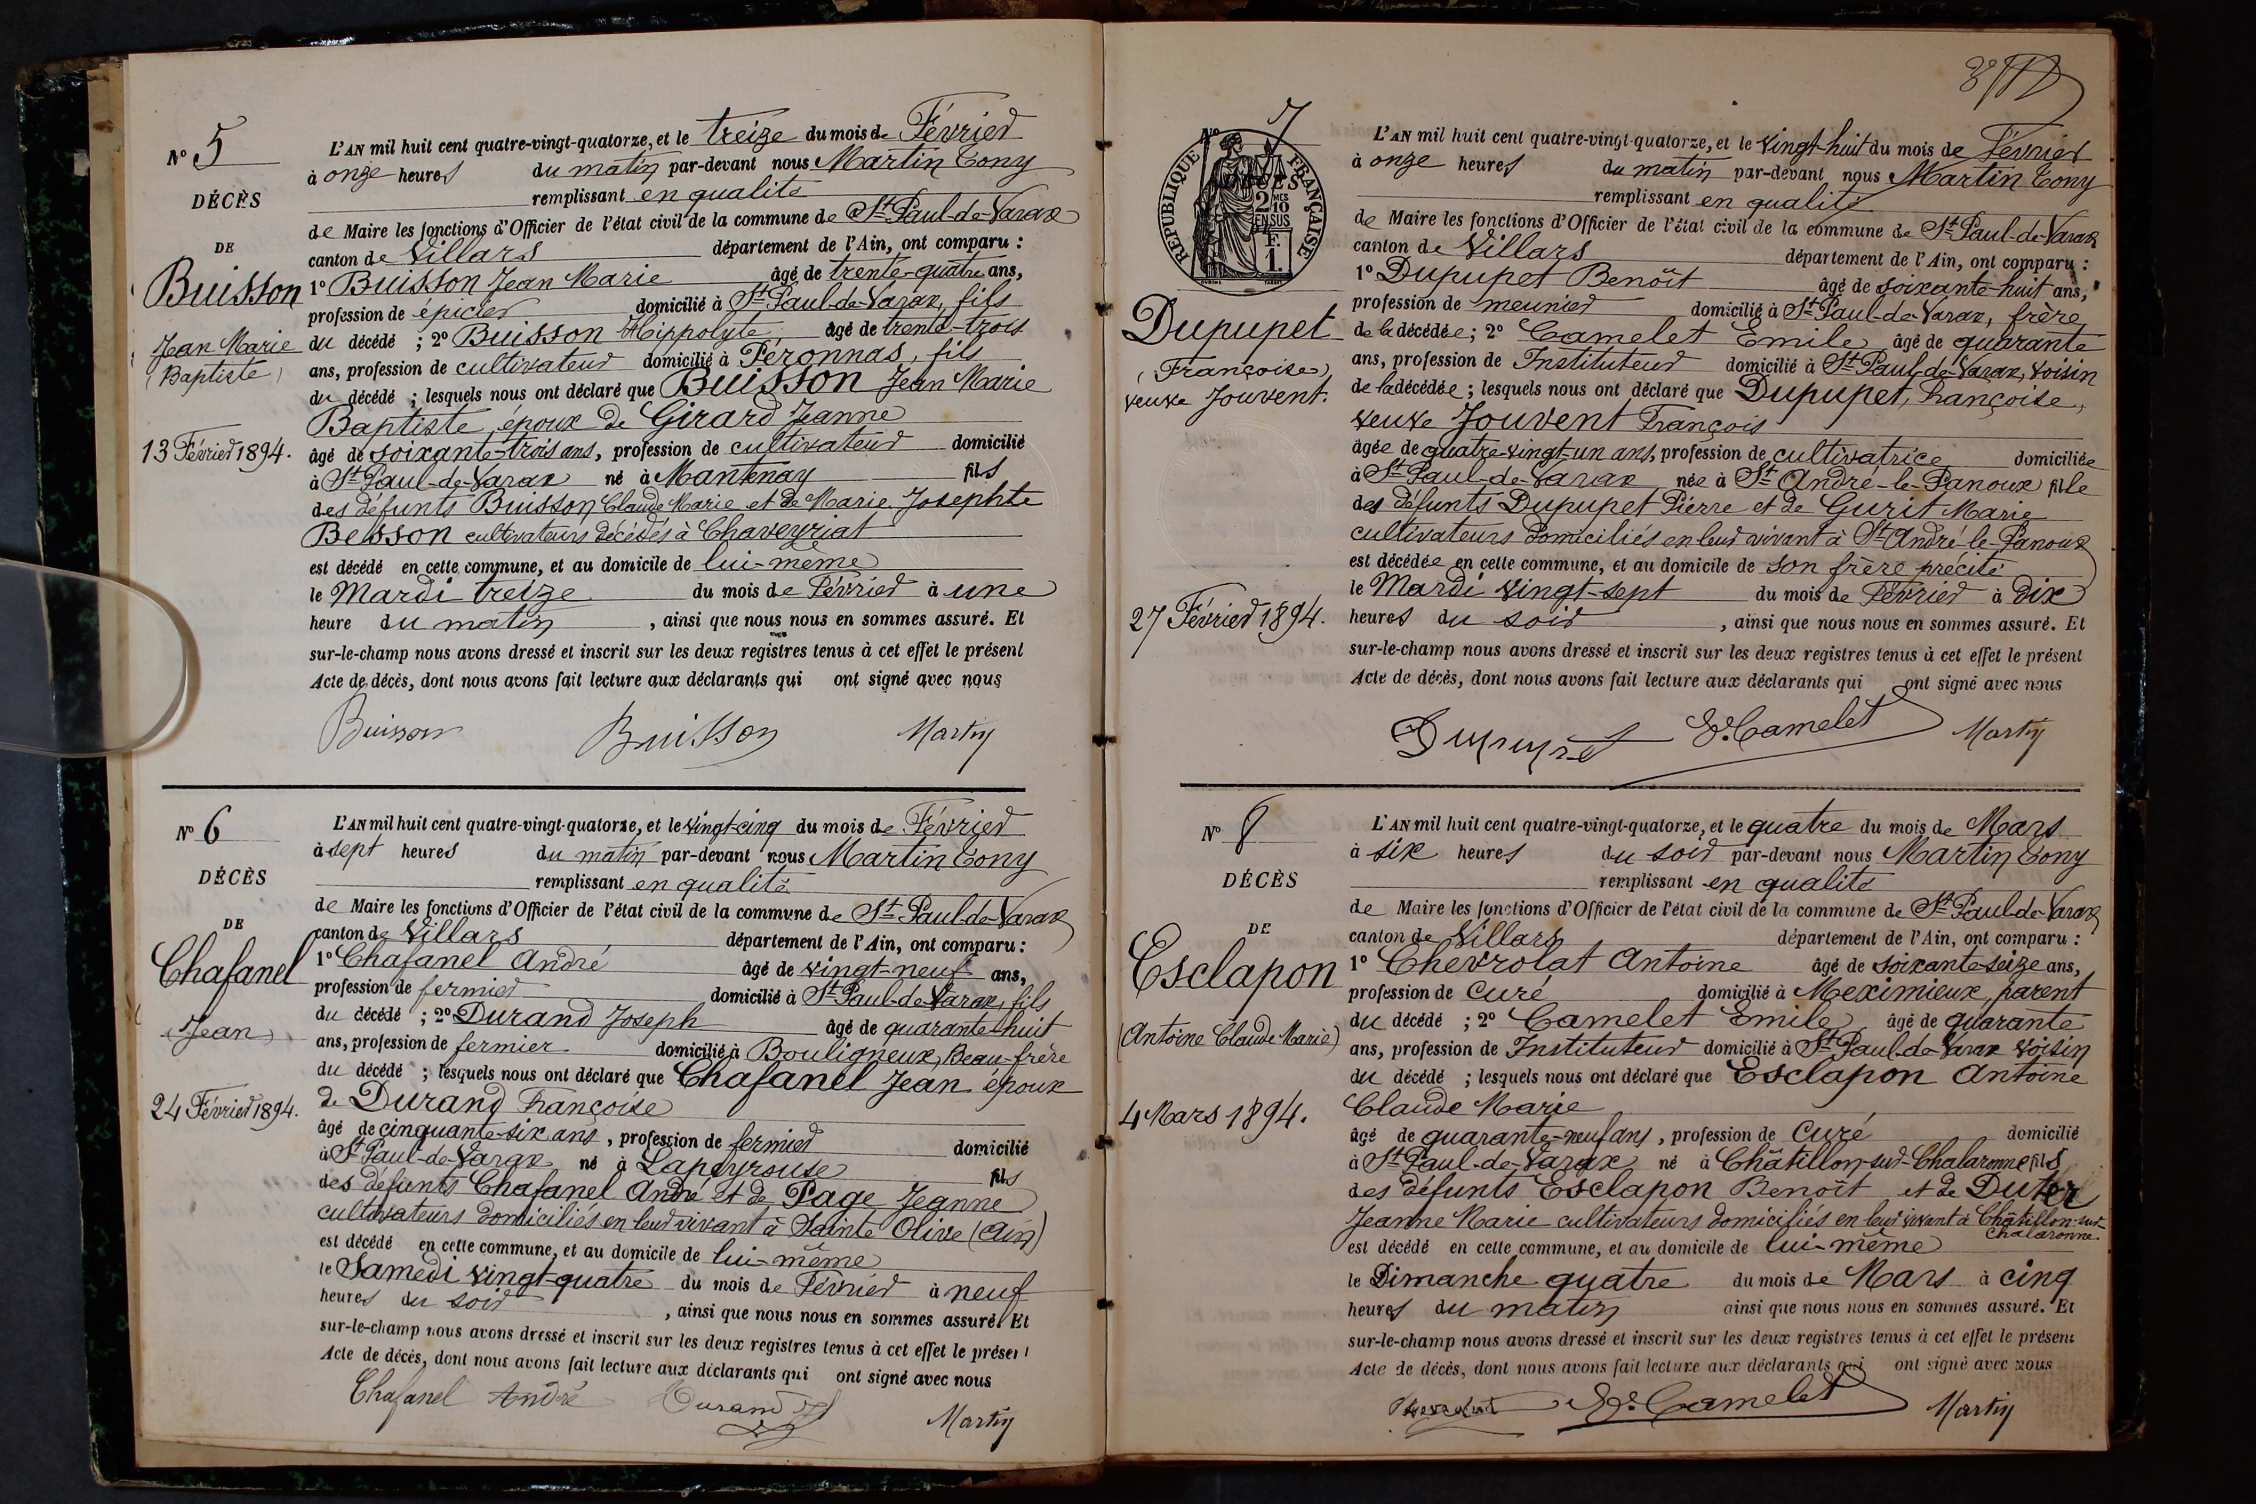 N° 5
DÉCÈS
DE
Buisson
Jean Marie
(Baptiste)
13 Février 1894.
L'AN mil huit cent quatre-vingt-quatorze, et le treize du mois de Février
à onze heures du matin par-devant nous Martin Tony
remplissant en qualité
de Maire les fonctions d'Officier de l'état civil de la commune de St-Paul-de-Varax
canton de Villars département de l'Ain, ont comparu :
1° Buisson Jean Marie âgé de trente-quatre ans,
profession de épicier domicilié à St-Paul-de-Varax, fils
du décédé ; 2° Buisson Hippolyte âgé de trente-trois
ans, profession de cultivateur domicilié à Péronnas, fils
du décédé ; lesquels nous ont déclaré que Buisson Jean Marie
Baptiste, époux de Girard Jeanne
âgé de soixante-trois ans, profession de cultivateur domicilié
à St-Paul-de-Varax né à Mantenay fils
des défunts Buisson Claude Marie et de Marie Josephte
Besson cultivateurs décédés à Chaveyriat
est décédé en cette commune, et au domicile de lui-même
le Mardi treize du mois de Février à une
heure du matin, ainsi que nous nous en sommes assuré. Et
sur-le-champ nous avons dressé et inscrit sur les deux registres tenus à cet effet le présent
Acte de décès, dont nous avons fait lecture aux déclarants qui ont signé avec nous
Buisson Buisson Martin
N° 6
DÉCÈS
DE
Chafanel
(Jean)
24 Février 1894.
L'AN mil huit cent quatre-vingt-quatorze, et le vingt-cinq du mois de Février
à sept heures du matin par-devant nous Martin Tony
remplissant en qualité
de Maire les fonctions d'Officier de l'état civil de la commune de St-Paul-de-Varax
canton de Villars département de l'Ain, ont comparu :
1° Chafanel André âgé de vingt-neuf ans,
profession de fermier domicilié à St-Paul-de-Varax, fils
du décédé ; 2° Durand Joseph âgé de quarante-huit
ans, profession de fermier domicilié à Bouligneux, Beau-frère
du décédé ; lesquels nous ont déclaré que Chafanel Jean époux
de Durand Françoise
âgé de cinquante-six ans, profession de fermier domicilié
à St-Paul-de-Varax né à Lapeyrouse fils
des défunts Chafanel André et de Page Jeanne
cultivateurs domiciliés en leur vivant à Sainte Olive (Ain)
est décédé en cette commune, et au domicile de lui-même
le Samedi vingt-quatre du mois de Février à neuf
heures du soir, ainsi que nous nous en sommes assuré. Et
sur-le-champ nous avons dressé et inscrit sur les deux registres tenus à cet effet le présent
Acte de décès, dont nous avons fait lecture aux déclarants qui ont signé avec nous
Chafanel André Durand Martin
N° 7
DÉCÈS
RÉPUBLIQUE FRANÇAISE
2 MES
10
EN SUS
F.
1.
Dupupet
(Françoise)
veuve Jouvent.
27 Février 1894.
L'AN mil huit cent quatre-vingt-quatorze, et le vingt-huit du mois de Février
à onze heures du matin par-devant nous Martin Tony
remplissant en qualité
de Maire les fonctions d'Officier de l'état civil de la commune de St-Paul-de-Varax
canton de Villars département de l'Ain, ont comparu :
1° Dupupet Benoît âgé de soixante-huit ans,
profession de meunier domicilié à St-Paul-de-Varax, frère
de la décédée ; 2° Camelet Emile âgé de quarante
ans, profession de Instituteur domicilié à St-Paul-de-Varax, voisin
de la décédée ; lesquels nous ont déclaré que Dupupet, Françoise,
veuve Jouvent François
âgée de quatre-vingt-un ans, profession de cultivatrice domiciliée
à St-Paul-de-Varax née à St-André-le-Panoux fille
des défunts Dupupet Pierre et de Gurit Marie
cultivateurs domiciliés en leur vivant à St-André-le-Panoux
est décédée en cette commune, et au domicile de son frère précité
le Mardi vingt-sept du mois de Février à dix
heures du soir, ainsi que nous nous en sommes assuré. Et
sur-le-champ nous avons dressé et inscrit sur les deux registres tenus à cet effet le présent
Acte de décès, dont nous avons fait lecture aux déclarants qui ont signé avec nous
Dupupet E. Camelet Martin
N° 8
DÉCÈS
DE
Esclapon
(Antoine Claude Marie)
4 Mars 1894.
L'AN mil huit cent quatre-vingt-quatorze, et le quatre du mois de Mars
à six heures du soir par-devant nous Martin Tony
remplissant en qualité
de Maire les fonctions d'Officier de l'état civil de la commune de St-Paul-de-Varax
canton de Villars département de l'Ain, ont comparu :
1° Chevrolat Antoine âgé de soixante-seize ans,
profession de Curé domicilié à Meximieux, parent
du décédé ; 2° Camelet Emile âgé de quarante
ans, profession de Instituteur domicilié à St-Paul-de-Varax voisin
du décédé ; lesquels nous ont déclaré que Esclapon Antoine
Claude Marie
âgé de quarante-neuf ans, profession de Curé domicilié
à St-Paul-de-Varax né à Châtillon-sur-Chalaronne fils
des défunts Esclapon Benoît et de Duter
Jeanne Marie cultivateurs domiciliés en leur vivant à Châtillon-sur-
Chalaronne
est décédé en cette commune, et au domicile de lui-même
le Dimanche quatre du mois de Mars à cinq
heures du matin ainsi que nous nous en sommes assuré. Et
sur-le-champ nous avons dressé et inscrit sur les deux registres tenus à cet effet le présent
Acte de décès, dont nous avons fait lecture aux déclarants qui ont signé avec nous
Chevrolat E. Camelet Martin